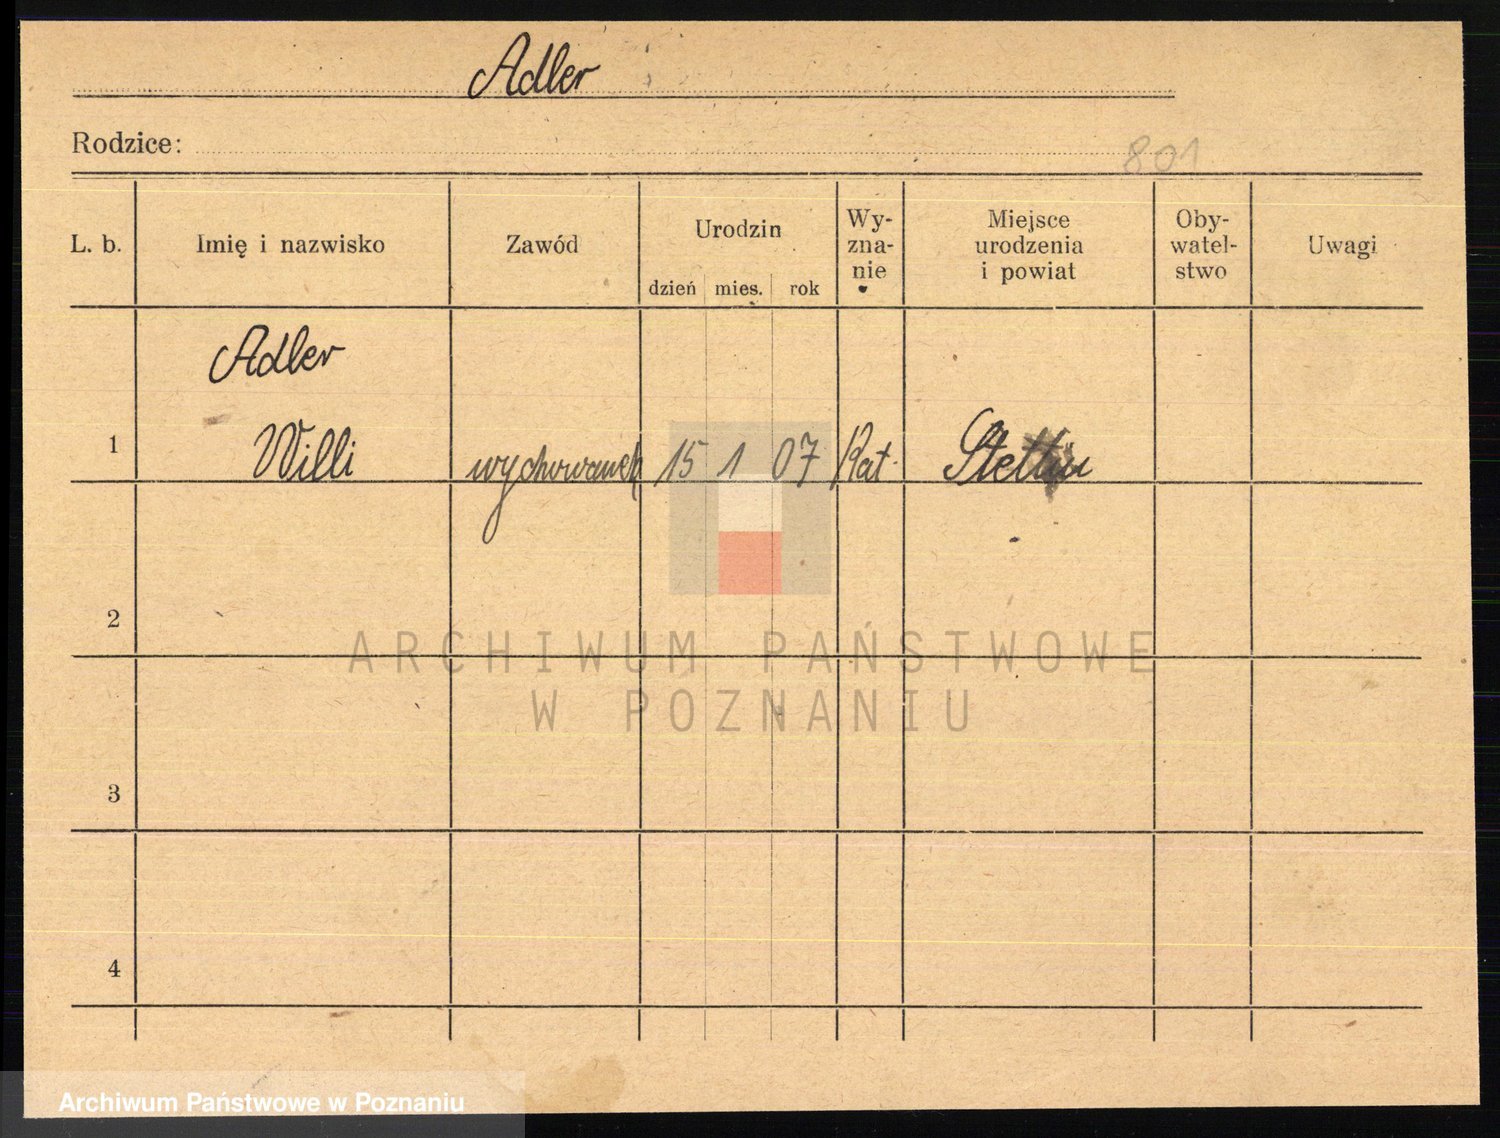 Adler
Rodzice:
801
L. b. Imię i nazwisko Zawód Urodzin dzień mies. rok Wy- zna- nie Miejsce urodzenia i powiat Oby- watel- stwo Uwagi
Adler
1 Willi wychowanek 15 1 07 Kat. Stettin
2
ARCHIWUM PAŃSTWOWE
W POZNANIU
3
4
Archiwum Państwowe w Poznaniu